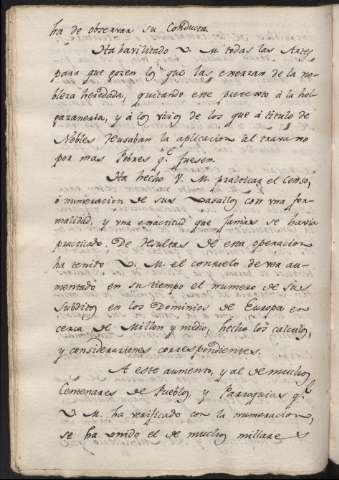 ha de observar su Conducta.
Ha havilitado V. M. todas las Artes
para que gozen los que las exerzan de la no-
bleza heredada, quitando este pretexto à la hol-
gazaneria, y à los vicios de los que à titulo de
Nobles reusaban la aplicacion al travajo
por mas Pobres q.e fuesen.
Ha hecho V. M. practicar el Censo,
ò numeracion de sus Vasallos con una for-
malidad, y una exactitud que jamas se havia
practicado. De Resultas de esta operacion
ha tenido V. M. el consuelo de ver au-
mentado en su tiempo el numero de sus
Subditos en los Dominios de Europa en
cerca de Millon y medio, hecho los calculos,
y consideraciones correspondientes.
A este aumento, y al de muchos
Centenares de Pueblos, y Parroquias q.e
V. M. ha verificado con la numeracion,
se ha unido el de muchos millares